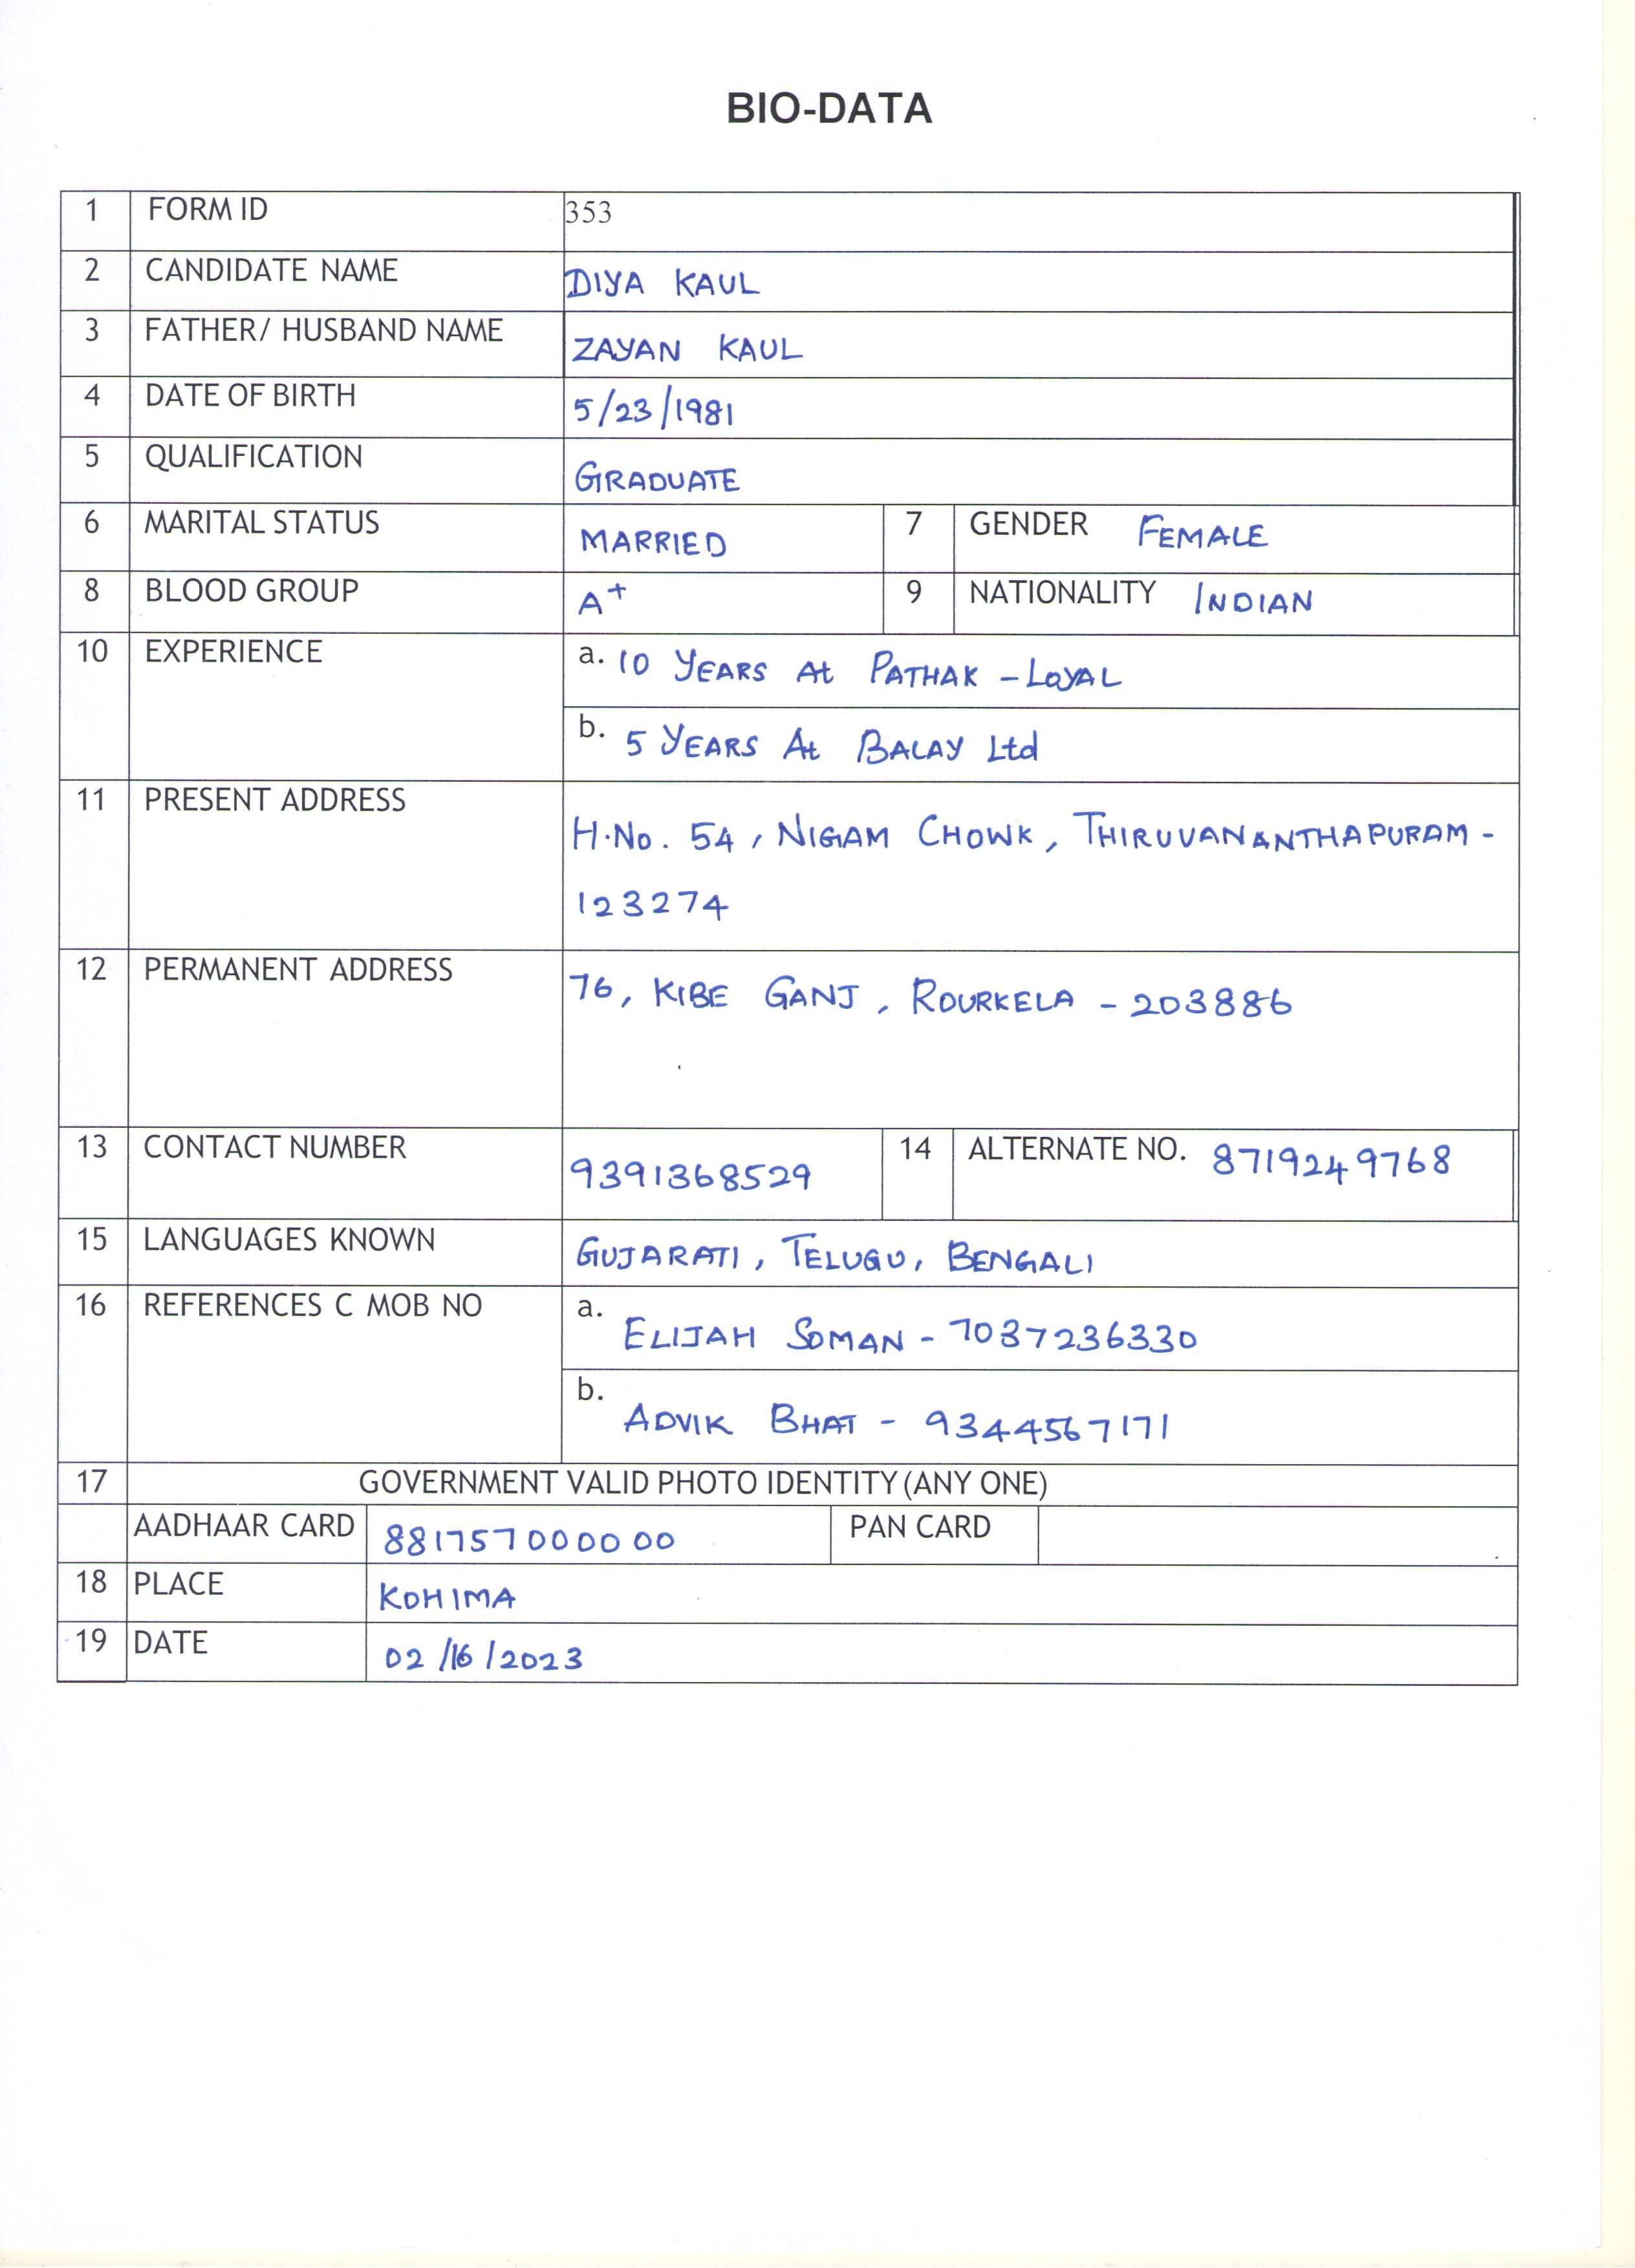 BIO-DATA
1 FORM ID 353
2 CANDIDATE NAME DIYA KAUL
3 FATHER/ HUSBAND NAME ZAYAN KAUL
4 DATE OF BIRTH 5/23/1981
5 QUALIFICATION GRADUATE
6 MARITAL STATUS MARRIED 7 GENDER FEMALE
8 BLOOD GROUP A+ 9 NATIONALITY INDIAN
10 EXPERIENCE a. 10 YEARS At PATHAK - LOYAL
b. 5 YEARS At BALAY Ltd
11 PRESENT ADDRESS H.No. 54, NIGAM CHOWK, THIRUVANANTHAPURAM -
123274
12 PERMANENT ADDRESS 76, KIBE GANJ, ROURKELA - 203886
13 CONTACT NUMBER 9391368529 14 ALTERNATE NO. 8719249768
15 LANGUAGES KNOWN GUJARATI, TELUGU, BENGALI
16 REFERENCES C MOB NO a. ELIJAH SOMAN - 7037236330
b. ADVIK BHAT - 9344567171
17 GOVERNMENT VALID PHOTO IDENTITY (ANY ONE)
AADHAAR CARD 881757000000 PAN CARD
18 PLACE KOHIMA
19 DATE 02/16/2023